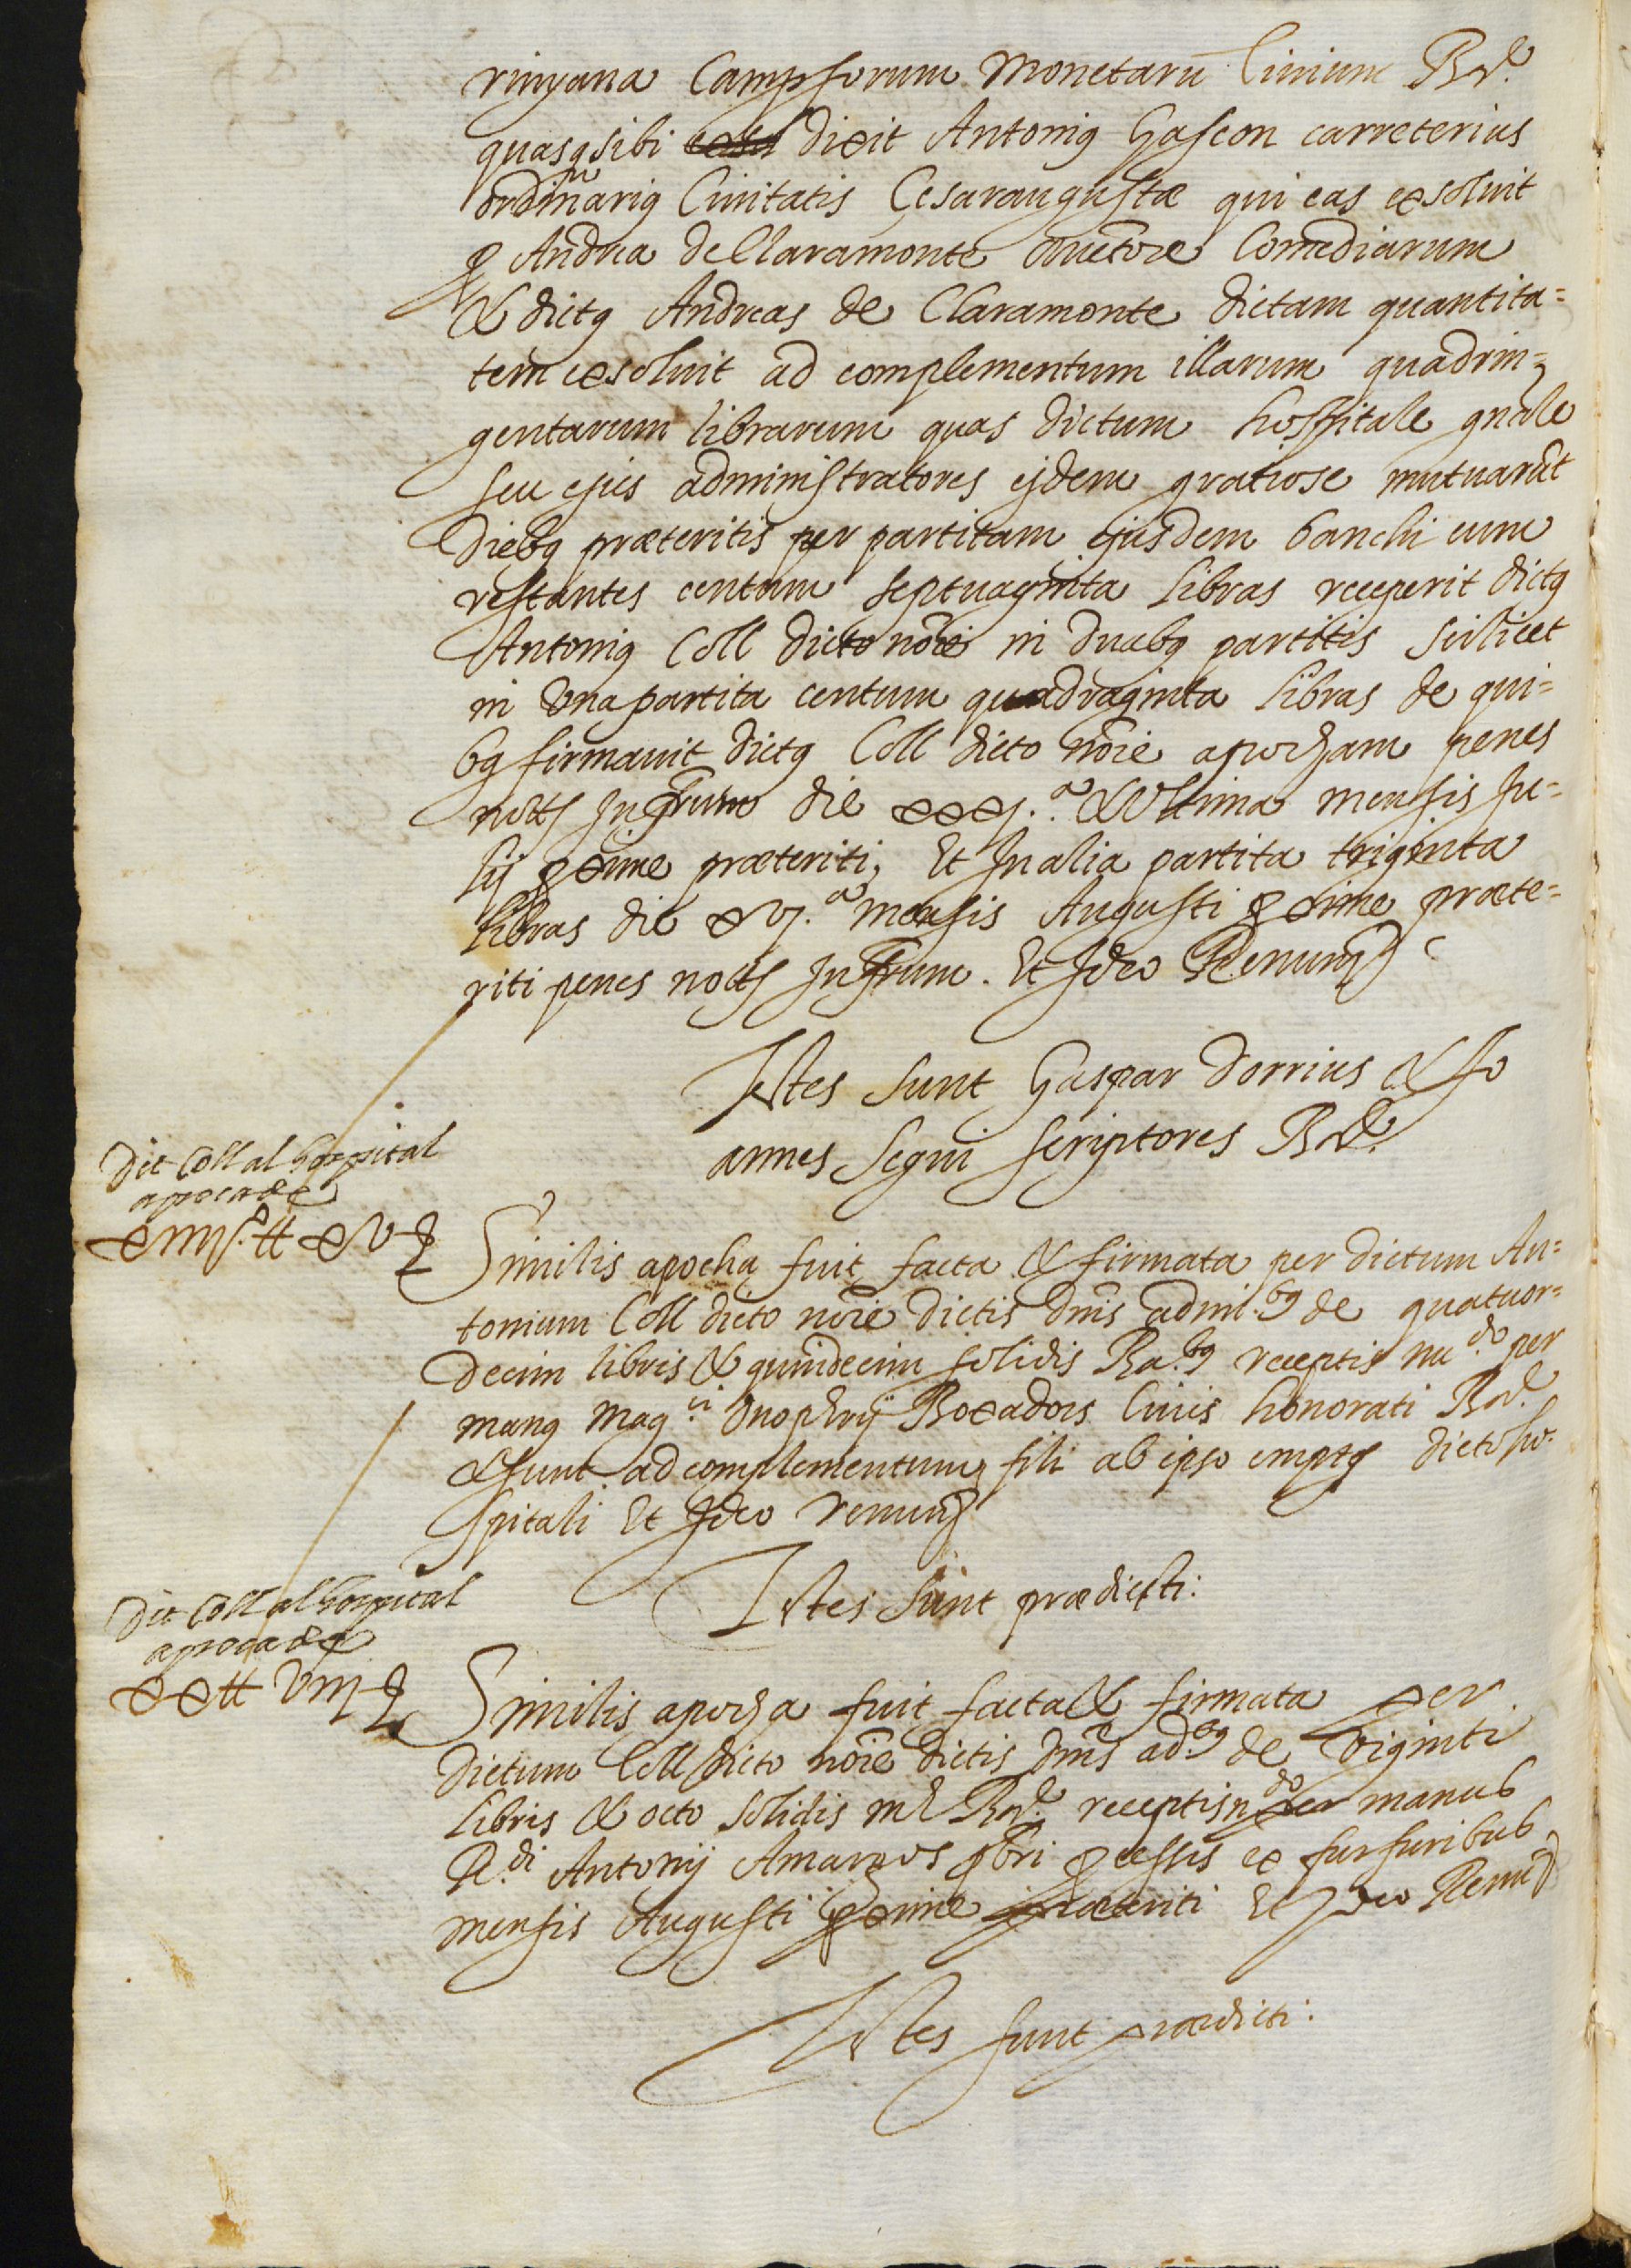 rinyana Campsorum Monetarũ Civium Barᵉ.
quasq̨ sibi dixit Antoniꝰ Gascon carreterius
ordinariꝰ Civitatis Cesaraugustæ qui eas exsoluit
ꝓ Andrea de Claramonte Auctore Comediarum
& dictꝰ Andreas de Claramonte dictam quantita=
tem exsoluit ad complementum illarum quadrin=
gentarum librarum quas dictum hospitale gnãle
seu ejus administratores ejdem gratiose mutuarũt
diebꝰ præteritis per partitam ejusdem banchi cum
restantes centum septuaginta libras receperit dictꝰ
Antoniꝰ Coll dicto nõie in duabꝰ partitis scilicet
in Vna partita centum quadraginta libras de qui=
bꝰ firmavit dictꝰ Coll dicto nõie apocham penes
notũ Infrum die xxxj.ª & Vltima mensis Ju=
lij ꝓxime præteriti, Et In alia partita triginta
libras die xvj.ª mensis Augusti ꝓxime præte=
riti penes notũ Infrum. Et Ideo Renunᵗ
Testes sunt Gaspar Dorrius & Jo
annes Segui scriptores Barᵉ.
Dit Coll al hospital
apoca de
xiiij.ᵒ ⁒ xv ß
Similis apocha fuit facta & firmata per dictum An=
tonium Coll dicto nõie dictis dnis admi.ᵇꝰ de quatuor=
decim libris & quindecim solidis Ba.ᵇꝰ receptis nu.ᵈᵒ per
manꝰ Mag.ⁱ Onophrij Boxadors Civis honorati Barᵉ.
& sunt ad complementum fili ab ipso emptꝰ dicto ho.
spitali Et Ideo renunᵗ
Testes sunt prædicti:
Dit Coll al hospital
apoca de
xx ⁒ viij ß
Similis apocha fuit facta & firmata per
dictum Coll dicto nõie dictis dnis ad.ᵇꝰ de viginti
libris & octo solidis Barᵉ. receptis n.ᵈᵒ per manus
R.ᵈⁱ Antonij Amargos p̃bri ꝓcessis ex furfuribus
mensis Augusti ꝓxime præteriti Et Ideo Renũᵗ
Testes sunt prædicti: